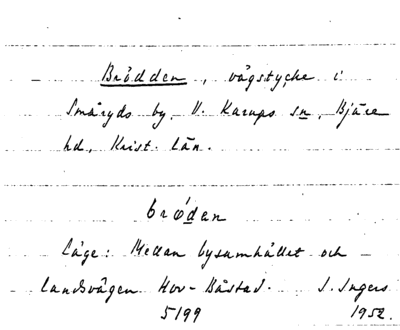 Brödden, vägstycke i
Smäryds by, V. Karups sn, Bjäre
hd, Krist. län.
brödan
Läge: Mellan bysamhället och
landsvägen Hov-Båstad. I. Ingers
5199 1952.